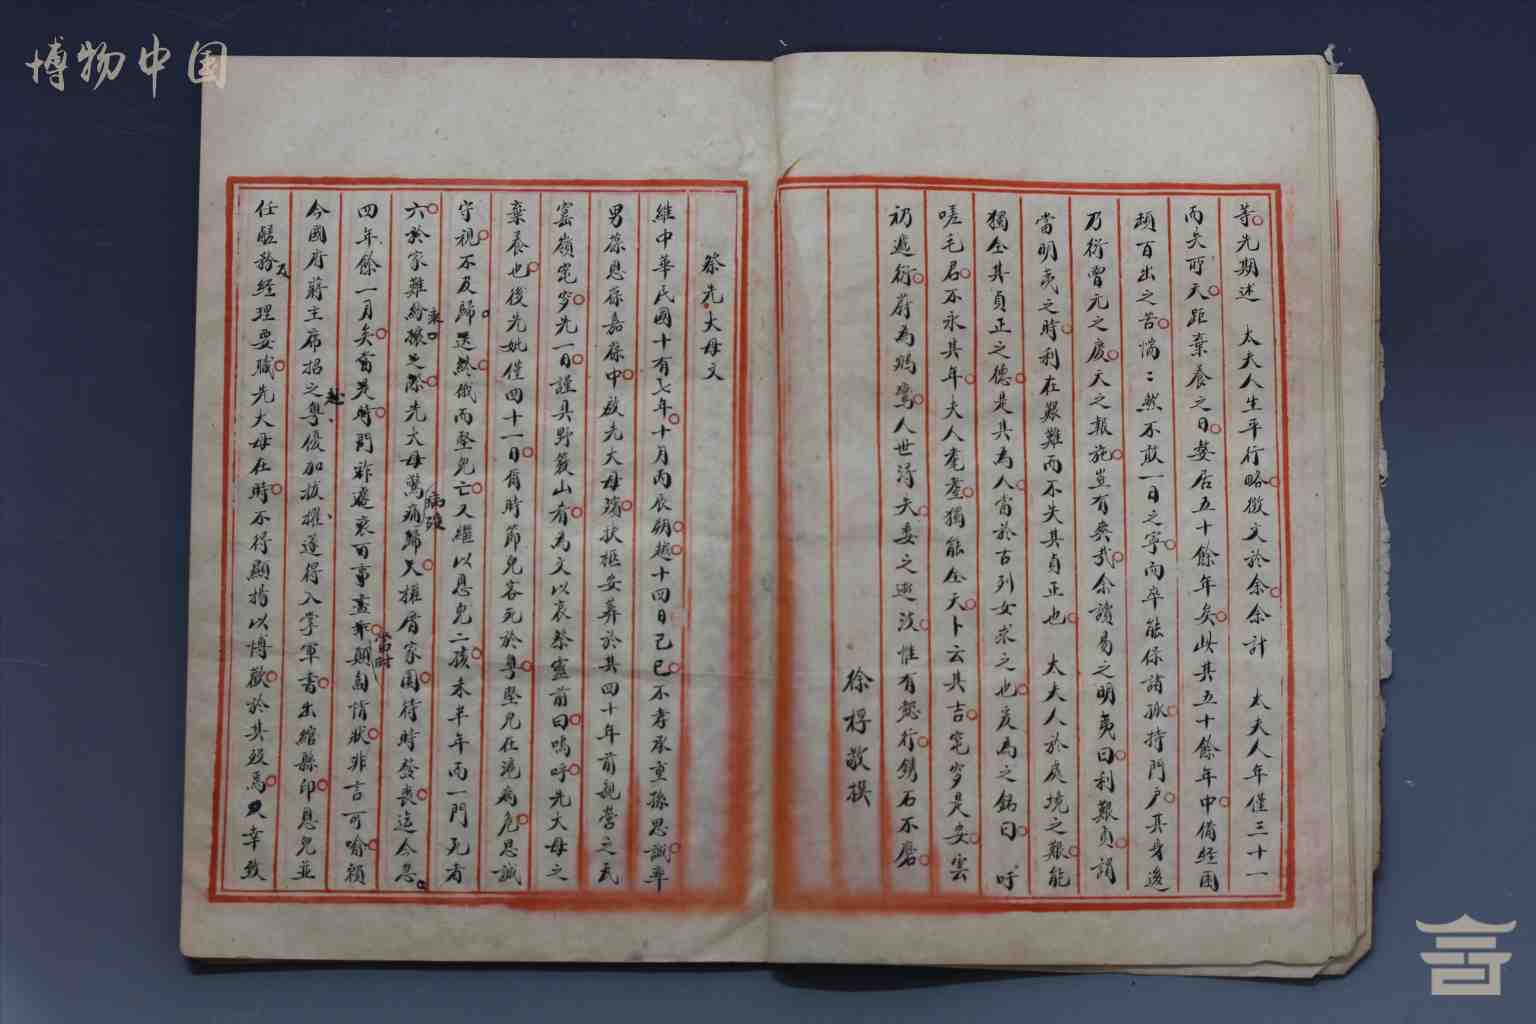 博物中国
等先期述　太夫人生平行略徵文於余余計　太夫人年僅三十一
而失所天距棄養之日嫠居五十餘年矣此其五十餘年中備經困
頓百出之苦惴:然不敢一日之寧而卒能保諸孤持門户其身後
乃衍曾元之慶天之報施豈有爽哉余讀易之明夷曰利艱貞謂
當明夷之時利在艱難而不失其貞正也　太夫人於處境之艱能
獨全其貞正之德是其為人當於古列女求之也爰為之銘曰　吁
嗟毛君不永其年夫人耄耋獨能全天卜云其吉窀穸是安雲
礽遞衍蔚為鵷鸞人世淂失委之逝波惟有懿行鐫石不磨
徐桴敬撰
祭先大母文
維中華民國十有七年十月丙辰朔越十四日己巳不孝承重孫思誠率
男葆恩葆嘉葆中啟先大母殯扶柩安葬於其四十年前親營之瓦
窰嶺窀穸先一日謹具野簌山肴為文以哀祭靈前曰嗚呼先大母之
棄養也後先妣僅四十一日爾時節兒客死於粤堅兒在滬病危思誠
守視不及歸送終俄而堅兒亡又繼以恩兒二孩未半年而一門死者
六於家難紛來擾之際先大母萬病殯痛歸天權厝家園待時發喪迄今忽
四年餘一月矣當是時門祚遽衰百事盡乖當時顛沛情狀非言可喻頻
今國府蔣主席招之赴粤優加拔擢遂得入掌軍書出綰縣印恩兒並
任艖務及經理要職先大母在時不得顯揚以博歡於其殁焉又幸致